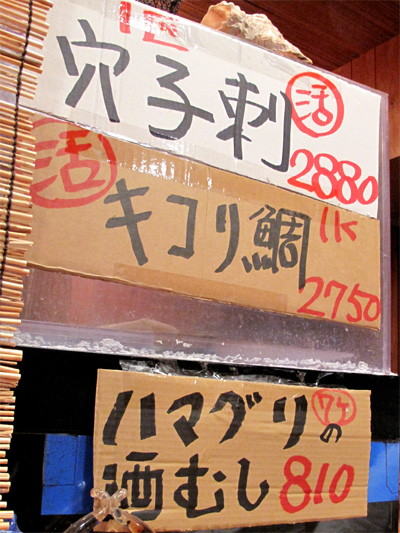 1匹
穴子刺 活
2880
活 キコリ鯛 1K
2750
ハマグリの 7ケ
酒むし 810